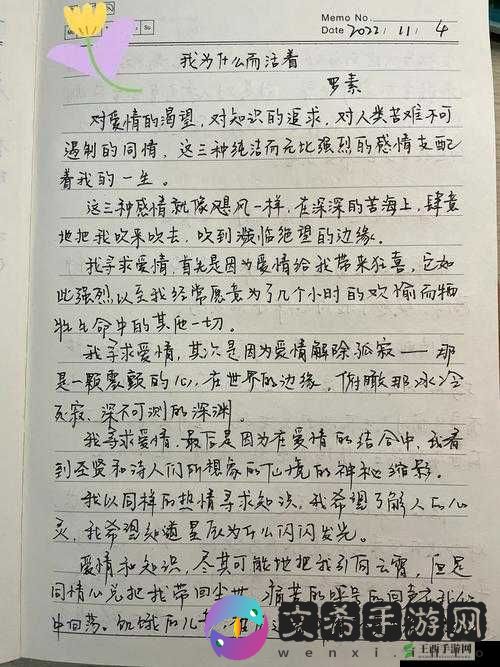 Memo No.
Mo Tu We Th Fr Sa Su
Date 2022 / 11 / 4
我为什么而活着
罗素
对爱情的渴望，对知识的追求，对人类苦难不可
遏制的同情，这三种纯洁而无比强烈的感情支配
着我的一生。
这三种感情就像飓风一样，在深深的苦海上，肆意
地把我吹来吹去，吹到濒临绝望的边缘。
我寻求爱情，首先是因为爱情给我带来狂喜，它如
此强烈以至我经常愿意为了几个小时的欢愉而牺
牲生命中的其他一切。
我寻求爱情，其次是因为爱情解除孤寂——那
是一颗震颤的心，在世界的边缘，俯瞰那冰冷
死寂、深不可测的深渊。
我寻求爱情，最后是因为在爱情的结合中，我看
到圣贤和诗人们所想象的仙境的神秘缩影。
我以同样的热情寻求知识，我希望了解人的心
灵，我希望知道星辰为什么闪闪发光。
爱情和知识，尽其可能地把我引向云霄，但是
同情心总把我带回尘世。痛苦的呼号的回声在我心
中回荡。饥饿的儿
文希手游网
wenxi
王西手游网